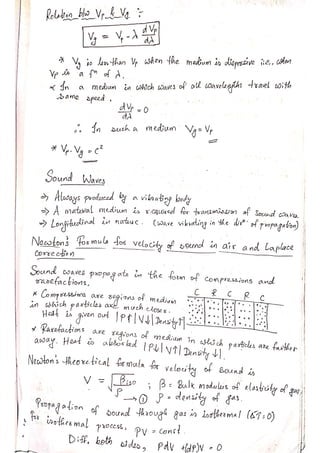 Relation btw Vp & Vg :-
Vg = Vp - λ dVp/dλ
* Vg is less than Vp when the medium is dispersive i.e. when
Vp is a fⁿ of λ.
* In a medium in which waves of all wavelengths travel with
same speed.
dVp/dλ = 0
∴ In such a medium Vg = Vp
* Vp.Vg = c²
Sound Waves
⇒ Always produced by a vibrating body
⇒ A material medium is required for transmission of sound waves
⇒ Longitudinal in nature. (wave vibrating in the dirⁿ of propagation)
Newton's formula for velocity of sound in air and Laplace
correction
Sound waves propagate in the form of compressions and
rarefactions.
* Compressions are regions of medium
in which particles are much closer.
Heat is given out |P↑|V↓|Density↑|
C R C R C
* Rarefactions are regions of medium in which particles are farther
away. Heat is absorbed |P↓|V↑|Density↓|
Newton's theoretical formula for velocity of sound is
V = √(βiso/ρ) ; β = Bulk modulus of elasticity of gas
→ ① ρ = density of gas.
Propagation of sound through gas is isothermal (δT=0)
For isothermal process, PV = const.
Diff. both sides, PdV + (dP)V = 0